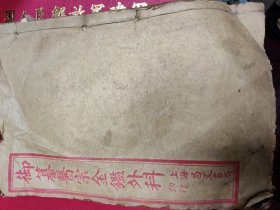 御纂醫宗金鑑外科
上海昌文書局
印行